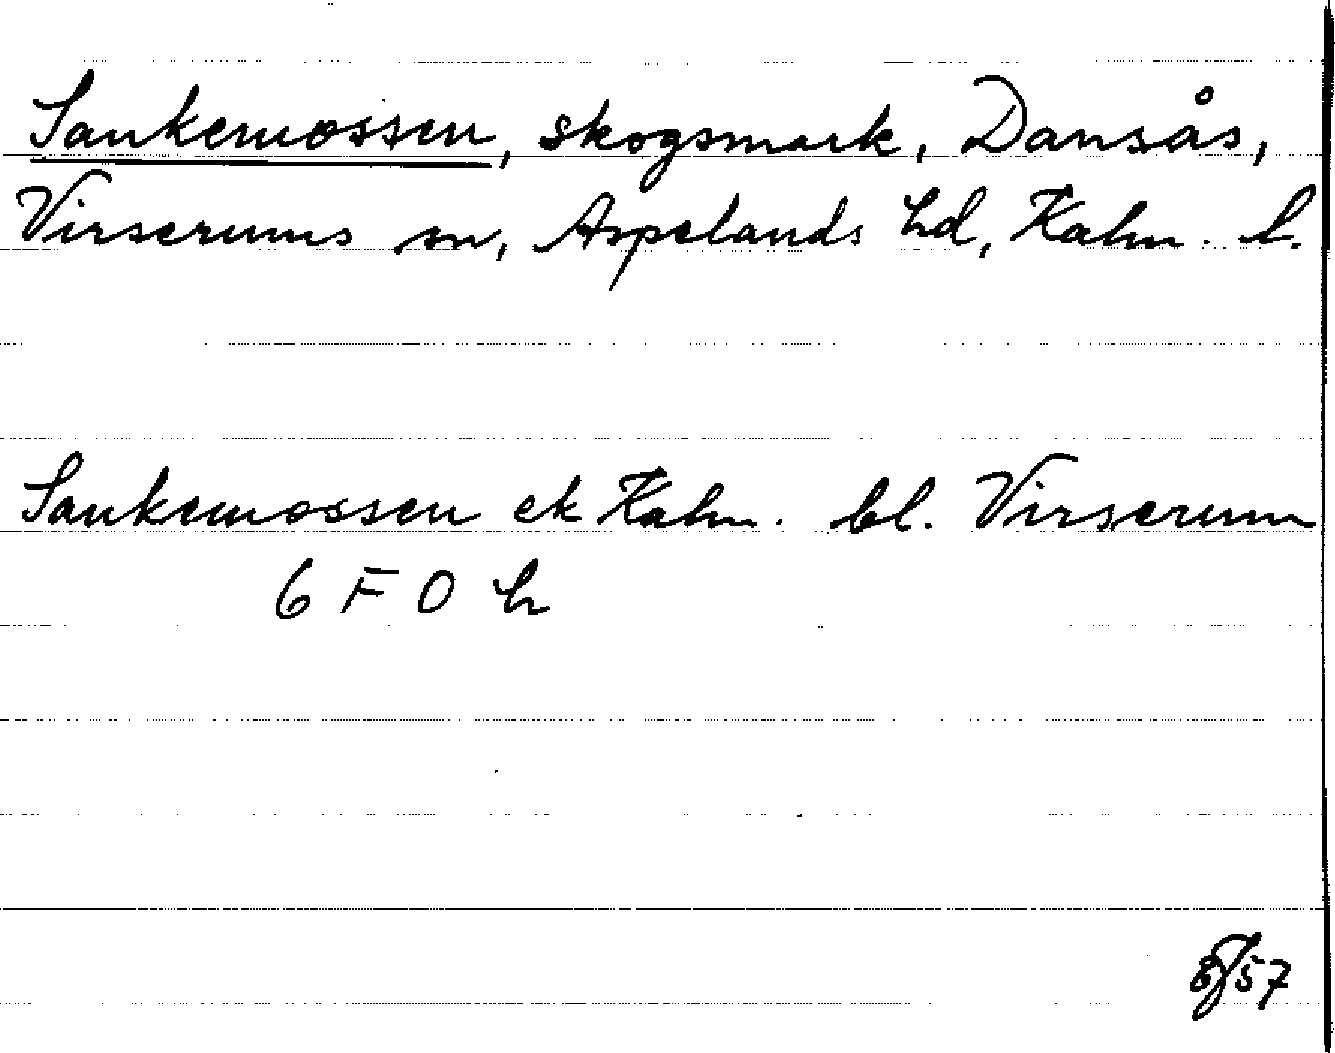 Sankemossen, skogsmark, Dansås,
Virserums sn, Aspelands hd, Kalm. l.
Sankemossen ek Kalm. bl. Virserum
6 F 0 h
57